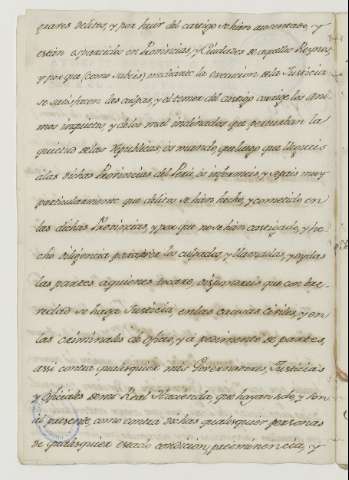 graves delitos, y por huir del castigo se han ausentado, y
estan esparcidos en Provincias, y Ciudades de aquellos Reynos,
y por que (como sabeis) mediante la execucion de la Justicia
se satisfacen las culpas, y el temor del castigo corrige los ani-
mos inquietos, y de los mal inclinados que perturban la
quietud de las Republicas os mando, que luego que llegueis
a las dichas Provincias del Perú, os informeis, y sepais muy
particularmente que delitos se han hecho, y cometido en
las dichas Provincias, y por que no se han castigado, y he-
cho diligencia para los culpados, y llamadas, y oydas
las partes a quienes tocare, dispornais que con bre-
vedad se haga Justicia, en las causas Civiles, y en
las criminales de oficio, y a pedimento de partes,
assi contra qualesquier mis Governadores, Justicias
y Oficiales de mi Real Hacienda, que hayan sido, y son
al presente, como contra otras qualesquier personas
de qualesquier estado, condicion, preeminencia, y